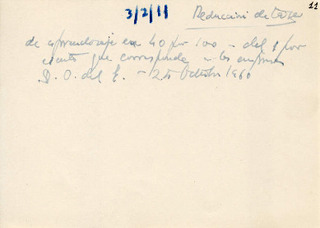 3/2/11 Reducción de tasas 11
de aprendizaje en 40 por 100 - del 1 por
ciento que corresponde a las empresas
B. O. del E. - 25 Octubre 1966